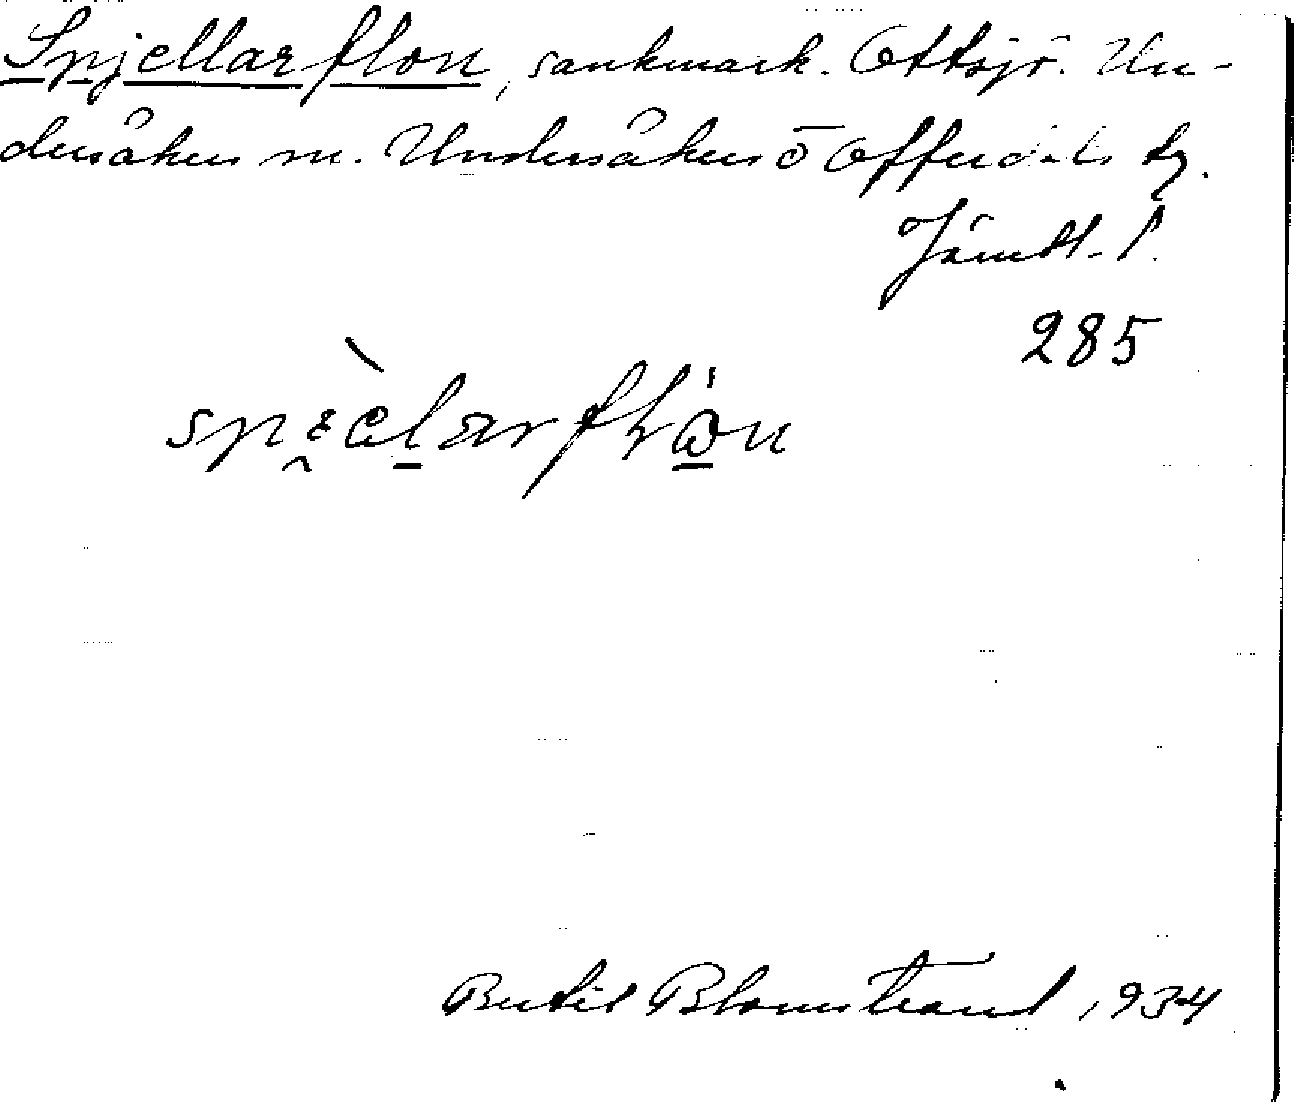 Spjellarflon, sankmark. Ottsjö. Un-
dersåkers sn. Undersåkers o Offerdals tg.
Jämtl. l.
285
Bertil Blomstrand, 1934